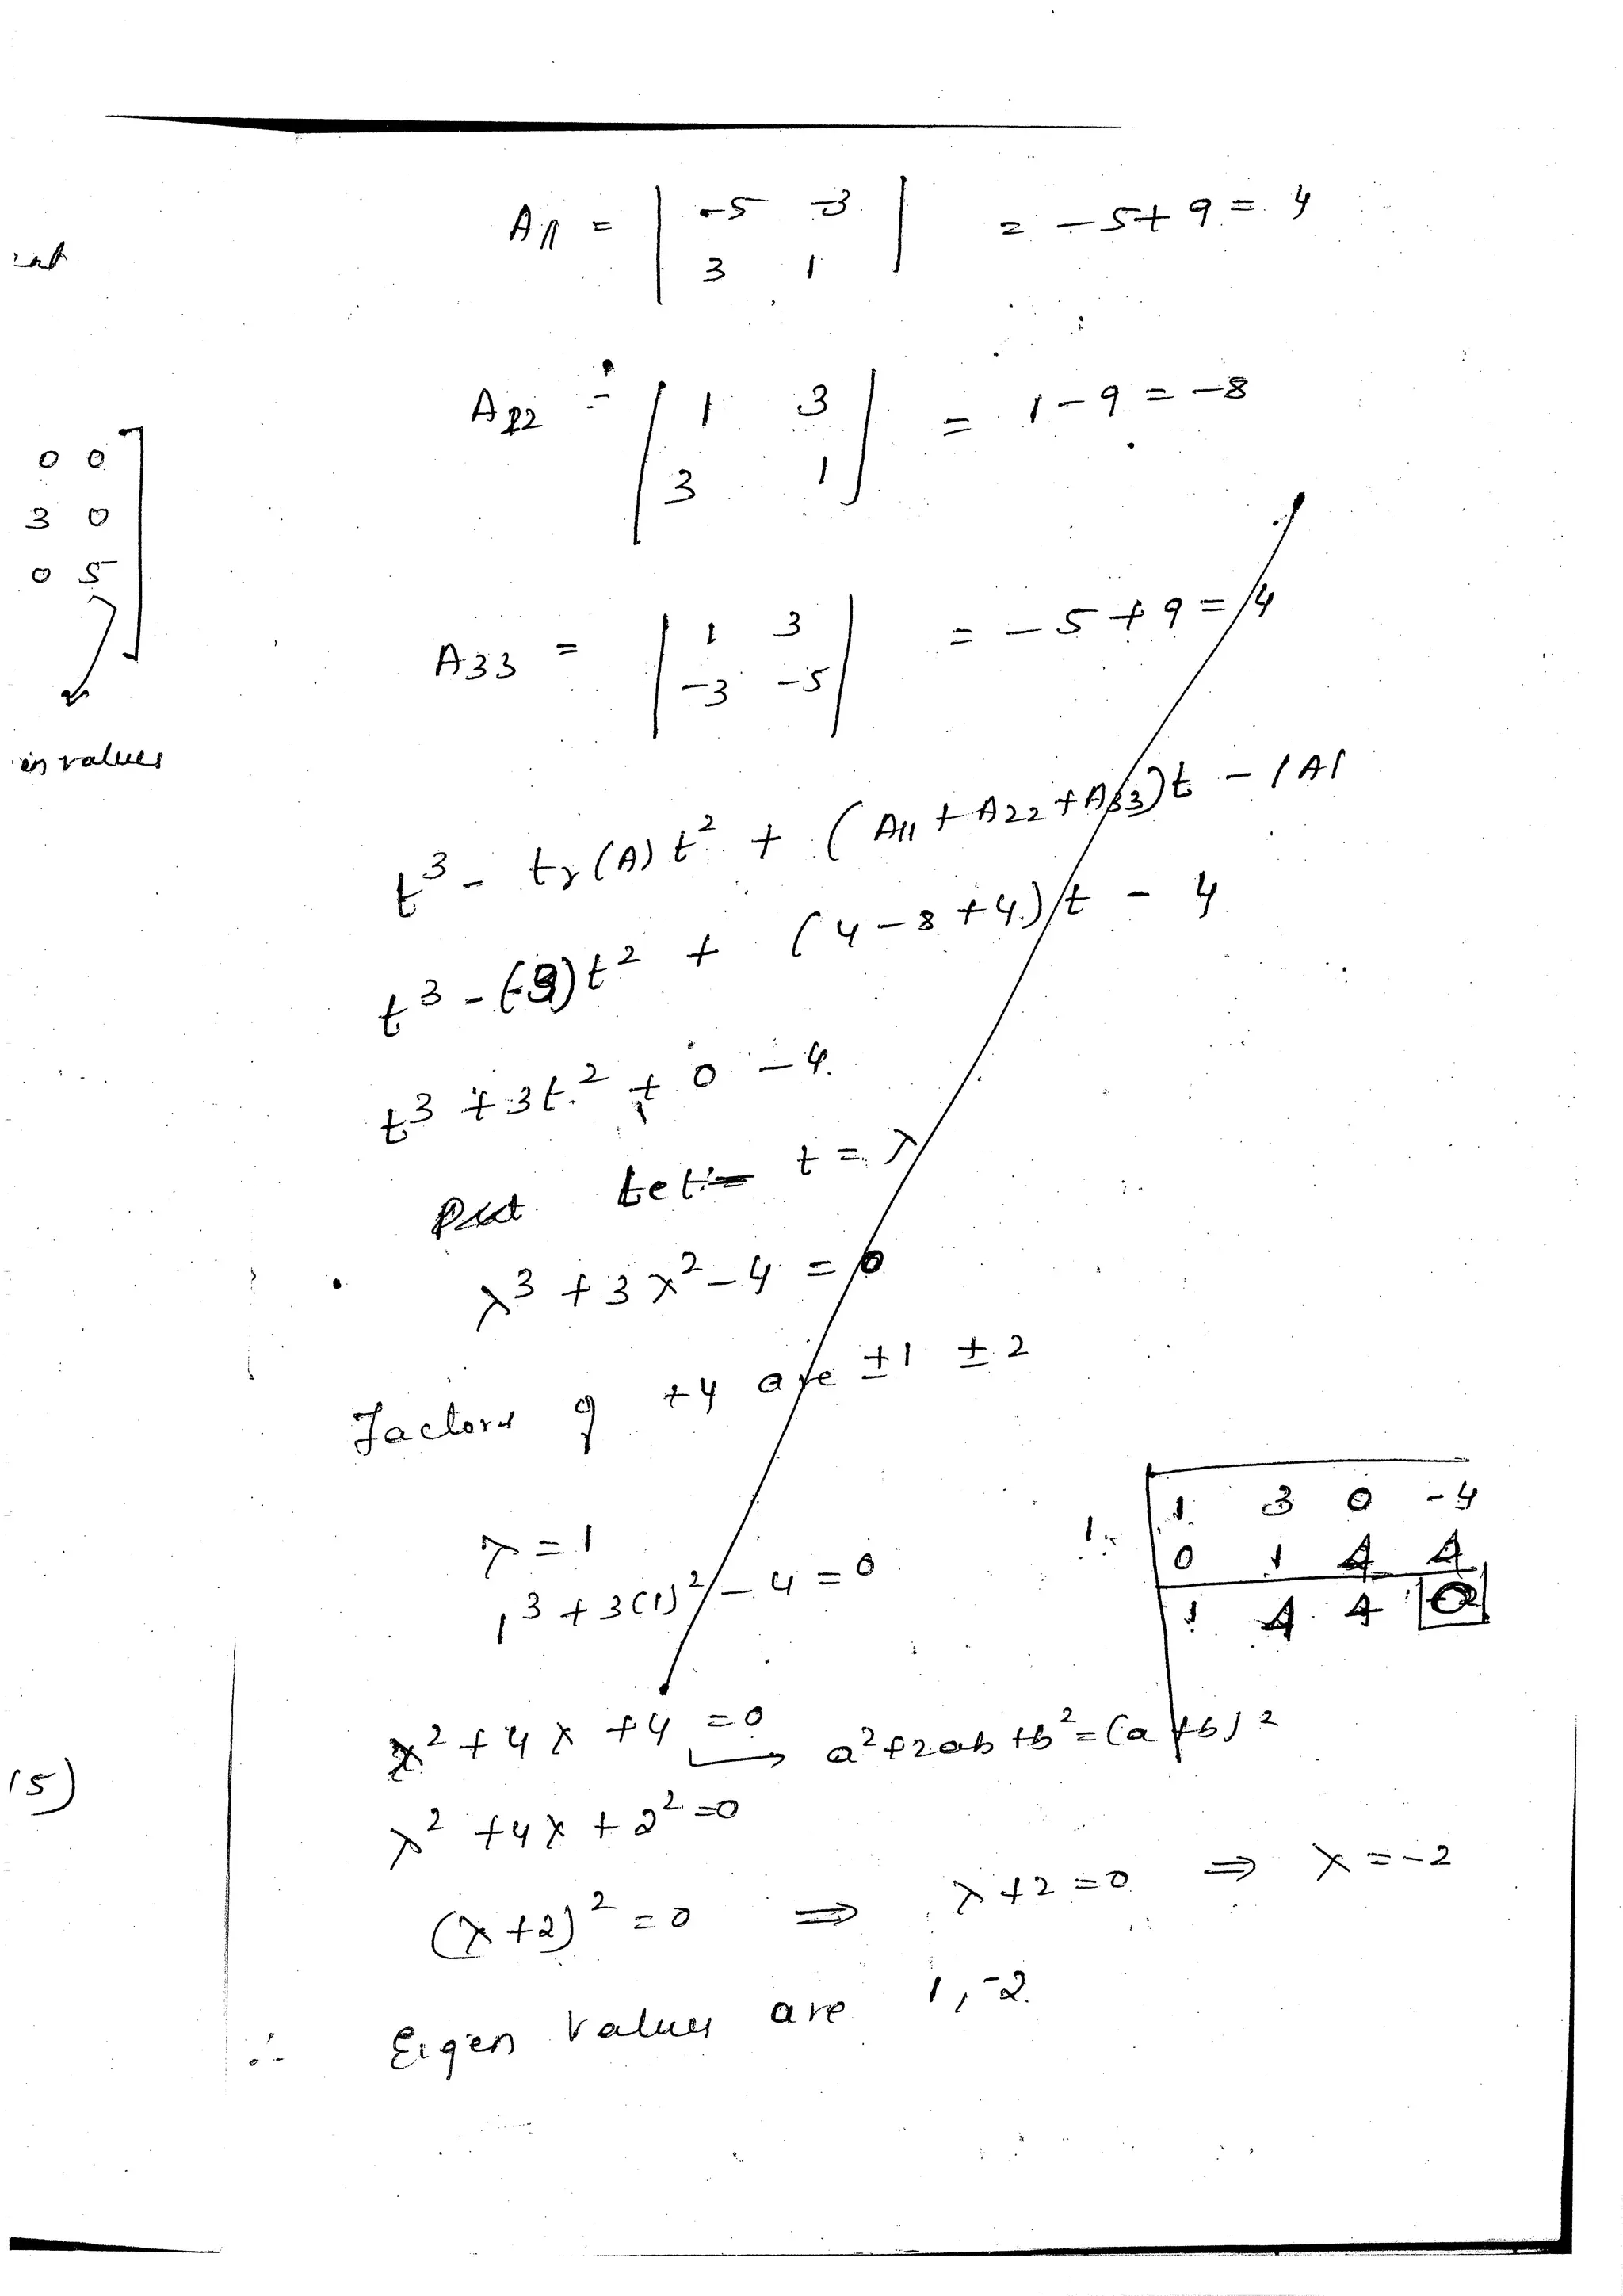 A11 = | -5 -3 | = -5+9 = 4
3 1
A22 = | 1 3 | = 1-9 = -8
3 1
0 0
3 0
0 5
A33 = | 1 3 | = -5+9 = 4
-3 -5
values
t³ - tr(A) t² + (A11 + A22 + A33)t - |A|
t³ - (-3)t² + (4-8+4)t - 4
t³ + 3t² + 0 - 4.
Put t = λ
λ³ + 3λ² - 4 = 0
Factors of +4 are ±1 ±2
λ = 1
1³ + 3(1)² - 4 = 0
1 | 1 3 0 -4
0 1 4 4
1 4 4 0
λ² + 4λ + 4 = 0 → a²+2ab+b² = (a+b)²
15)
λ² + 4λ + 2² = 0
(λ+2)² = 0 ⇒ λ+2 = 0 ⇒ λ = -2
∴ Eigen values are 1, -2.